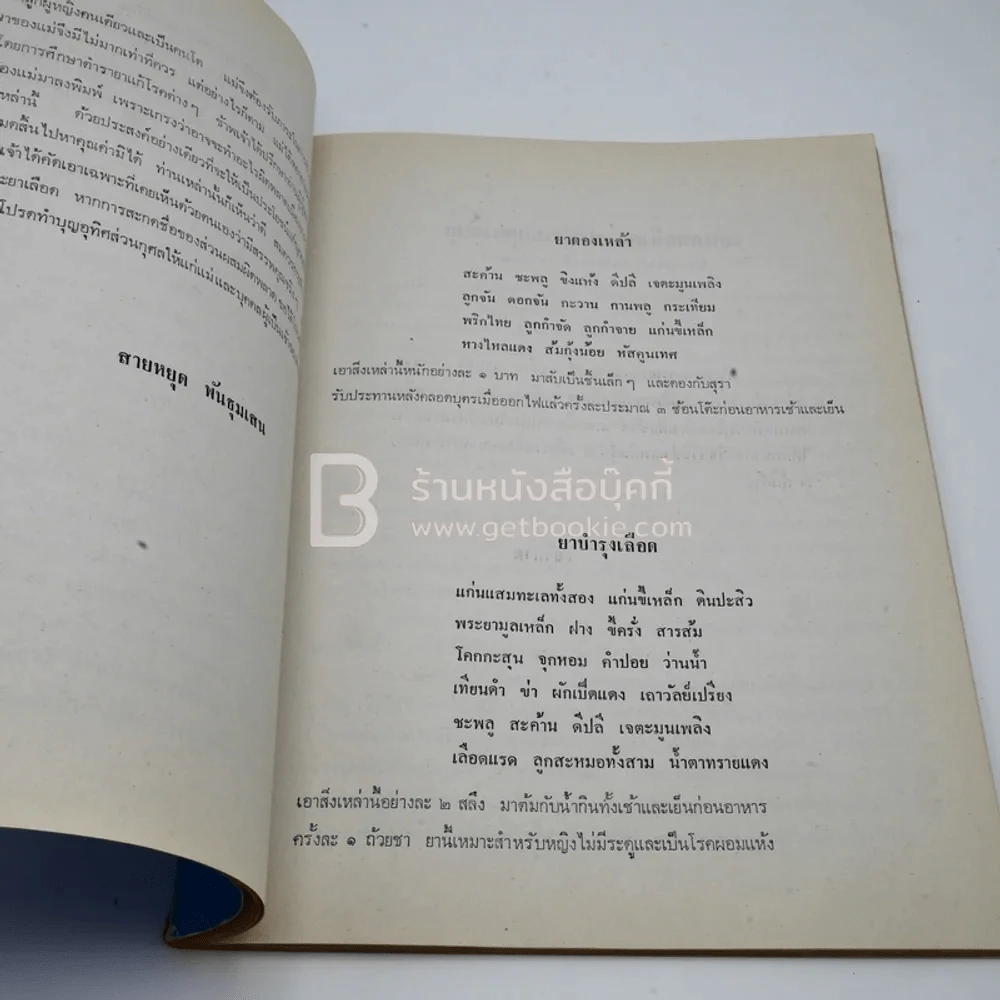 ลูกผู้หญิงคนเดียวและเป็นคนโต แม่จึงต้องรับภาระ
ของแม่จึงมีไม่มากเท่าที่ควร แต่อย่างไรก็ตาม แม่ได้
โดยการศึกษาตำรายาแก้โรคต่างๆ ข้าพเจ้าได้ปรึกษา
ของแม่มาลงพิมพ์ เพราะเกรงว่าอาจจะทำอะไรผิดพลาด
เหล่านี้ ด้วยประสงค์อย่างเดียวที่จะให้เป็นประโยชน์
มดสิ้นไปหาคุณค่ามิได้ ท่านเหล่านั้นก็เห็นว่าดี
เจ้าได้คัดเอาเฉพาะที่เคยเห็นด้วยตนเองว่ามีสรรพคุณ
ะยาเลือด หากการสะกดชื่อของส่วนผสมผิดพลาด ขอได้
โปรดทำบุญอุทิศส่วนกุศลให้แก่แม่และบุคคลผู้เป็นเจ้าของ
สายหยุด พันธุมเสน
ยาดองเหล้า
สะค้าน ชะพลู ขิงแห้ง ดีปลี เจตะมูนเพลิง
ลูกจัน ดอกจัน กะวาน กานพลู กระเทียม
พริกไทย ลูกกำจัด ลูกกำจาย แก่นขี้เหล็ก
หางไหลแดง ส้มกุ้งน้อย หัสคุนเทศ
เอาสิ่งเหล่านี้หนักอย่างละ ๑ บาท มาสับเป็นชิ้นเล็กๆ และดองกับสุรา
รับประทานหลังคลอดบุตรเมื่อออกไฟแล้วครั้งละประมาณ ๓ ช้อนโต๊ะก่อนอาหารเช้าและเย็น
ร้านหนังสือบุ๊คกี้
www.getbookie.com
ยาบำรุงเลือด
แก่นแสมทะเลทั้งสอง แก่นขี้เหล็ก ดินปะสิว
พระยามูลเหล็ก ฝาง ขี้ครั่ง สารส้ม
โคกกะสุน จุกหอม คำปอย ว่านน้ำ
เทียนดำ ข่า ผักเป็ดแดง เถาวัลย์เปรียง
ชะพลู สะค้าน ดีปลี เจตะมูนเพลิง
เลือดแรด ลูกสะหมอทั้งสาม น้ำตาทรายแดง
เอาสิ่งเหล่านี้อย่างละ ๒ สลึง มาต้มกับน้ำกินทั้งเช้าและเย็นก่อนอาหาร
ครั้งละ ๑ ถ้วยชา ยานี้เหมาะสำหรับหญิงไม่มีระดูและเป็นโรคผอมแห้ง